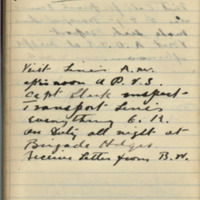 Visit Lines A.M.
afternoon A.D.V.S.
Capt Slack inspect
Transport Lines
everything O.K.
on Duty all night at
Brigade Hdqrs
Receive Letter from B.W.